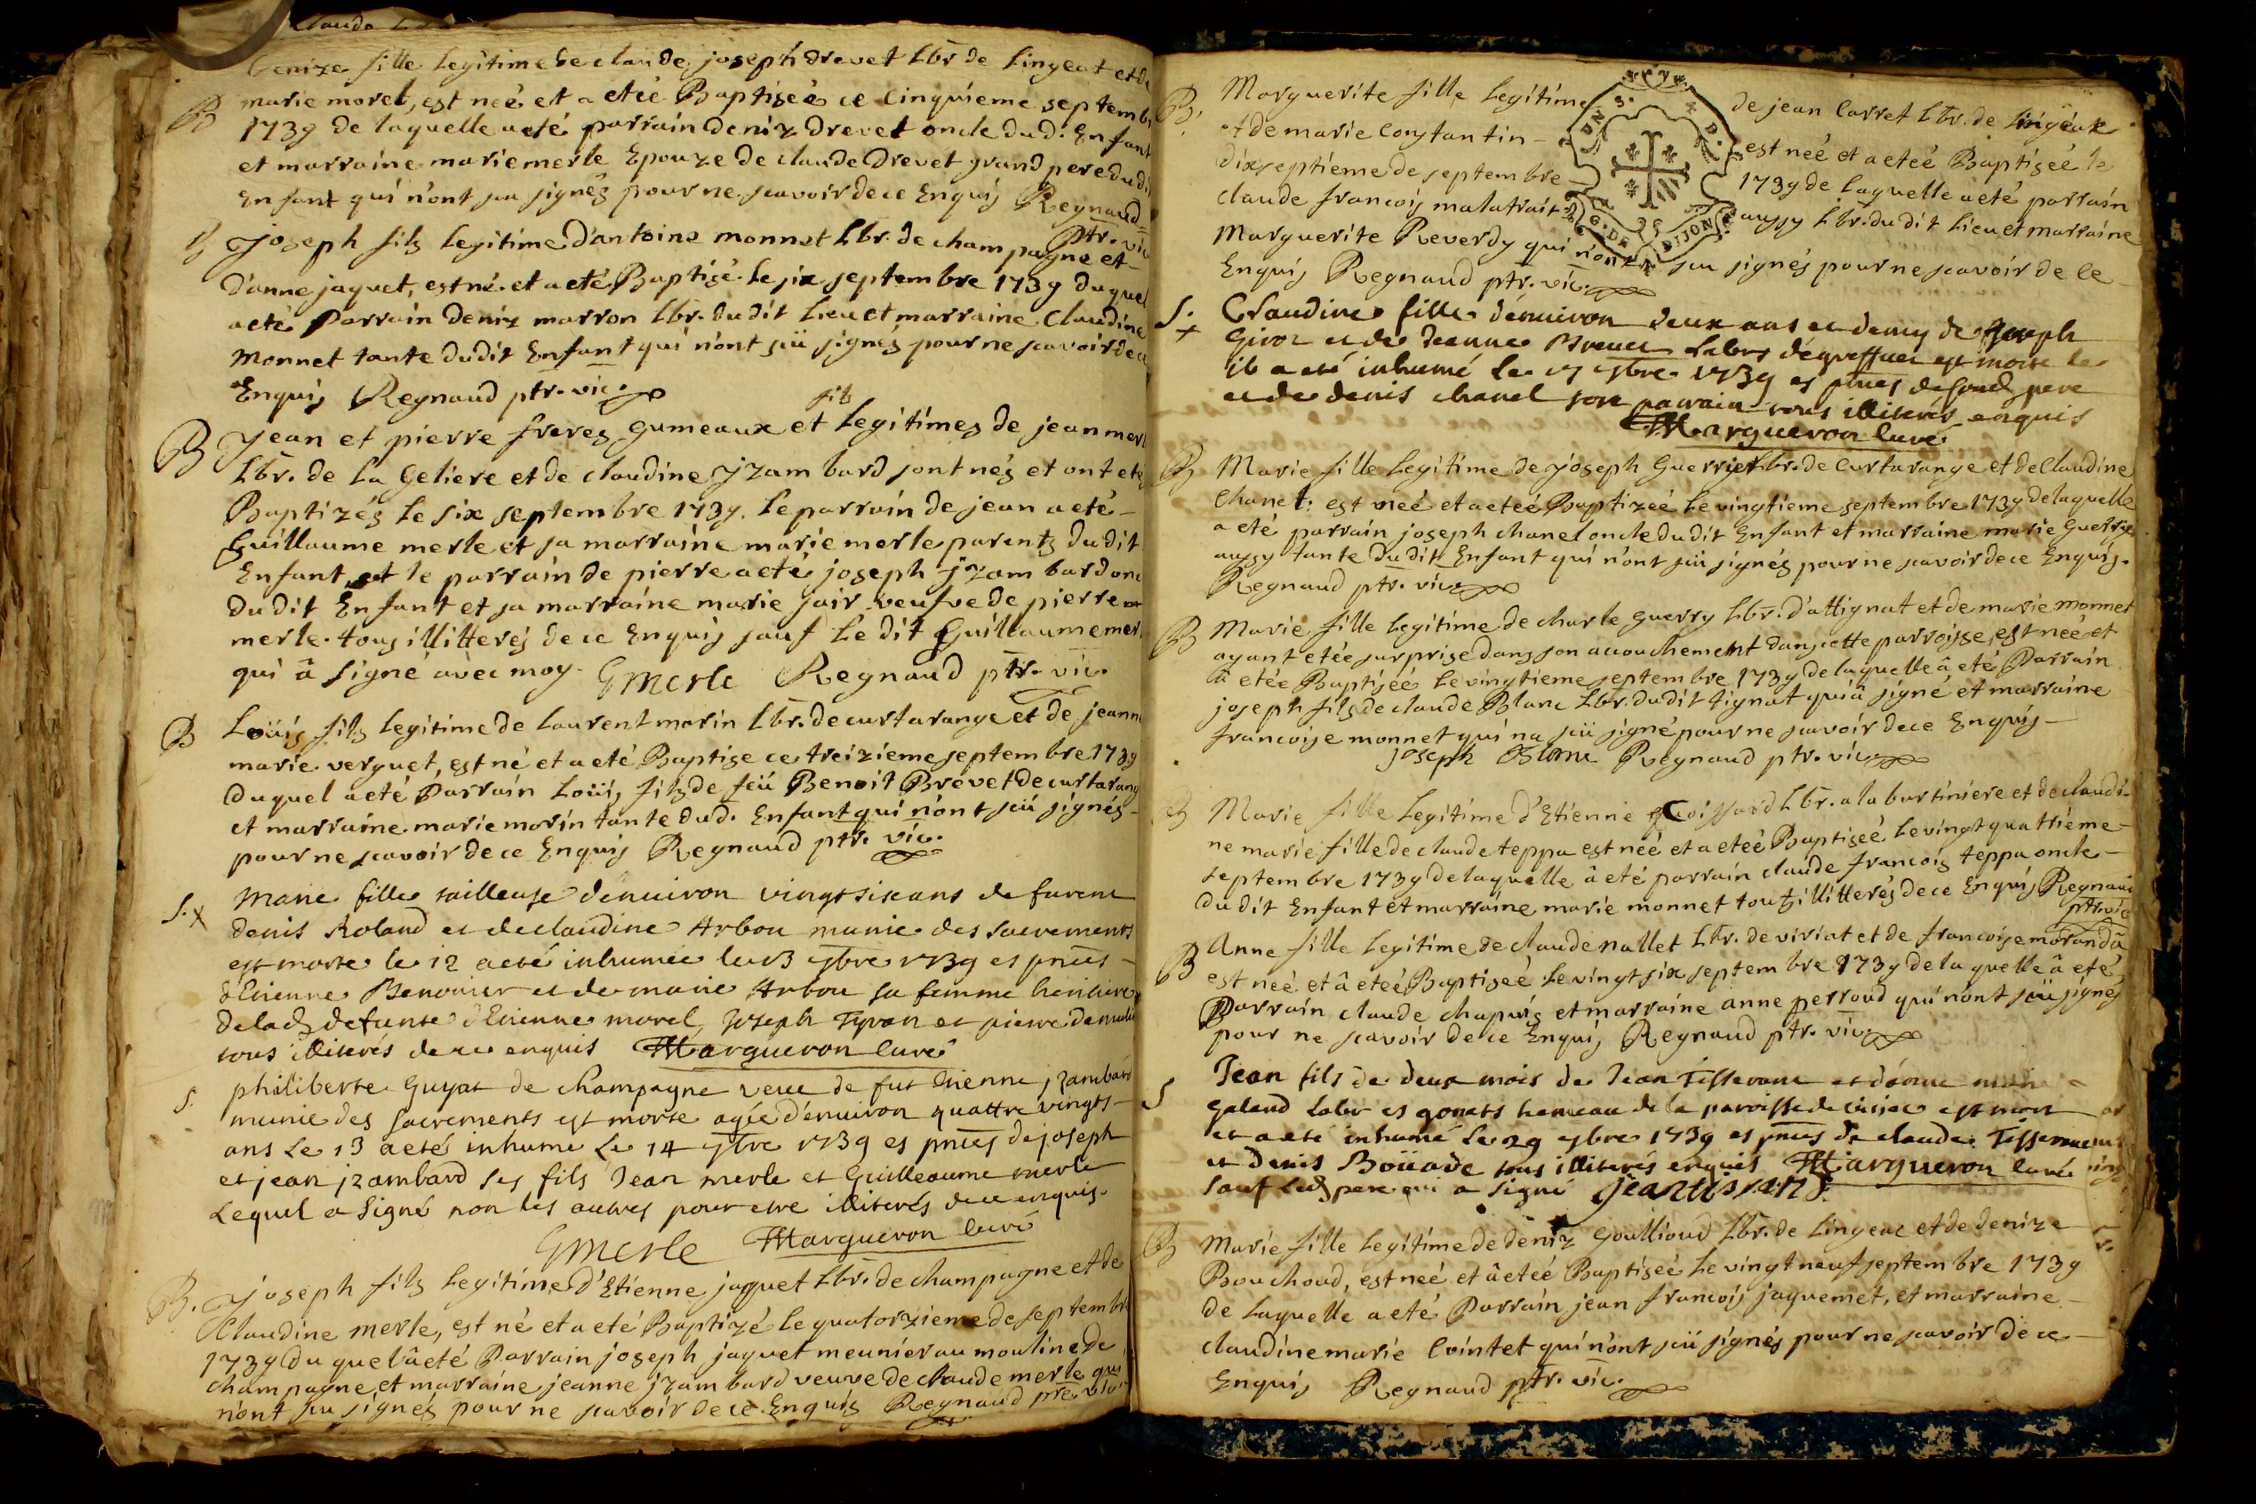 Claude
Denize fille legitime de claude joseph drevet Lbr de lingeat et de
B marie morel, est neé et a eteé Baptiseé ce cinquieme septembre
1739 de laquelle a eté parrain deniz drevet oncle dud. Enfant
et marraine marie merle Epouze de claude Drevet grand pere dudit
Enfant qui n'ont sçu signés pour ne scavoir de ce Enquis Regnaud
ptr. vic
B Joseph fils legitime d'antoine monnet Lbr. de champagne et
d'anne jaquet, est né et a eté Baptisé le six septembre 1739 duquel
a eté Parrain deniz marron lbr. du dit lieu et marraine Claudine
Monnet tante dudit Enfant qui n'ont sçü signés pour ne scavoir de ce
Enquis Regnaud ptr. vic.
fils
B Jean et pierre freres gumeaux et legitimes de jean merle
Lbr. de la Geliere et de claudine jzambard sont nés et ont eté
Baptizés le six septembre 1739. le parrain de jean a eté
Guillaume merle et sa marraine marie merle parents du dit
Enfant, et le parrain de pierre a eté joseph jzambard oncle
du dit Enfant et sa marraine marie sair veufve de pierre
merle. tous illitterés de ce Enquis sauf le dit Guillaume merle
qui a signé avec moy. GMerle Regnaud ptr. vic.
B Loüis fils legitime de laurent morin lbr. de curtarange et de jeanne
marie verguet, est né et a eté Baptise ce treizieme septembre 1739
Duquel a eté Parrain Loüis fils de feü Benoit Brevet de curtarange
et marraine marie morin tante dud. Enfant qui n'ont sçü signés
pour ne scavoir de ce Enquis Regnaud ptr. vic.
S. x Marie fille tailleuse d'enuiron vingt six ans de furent
denis Roland et de claudine Arbon munie des sacrements
est morte le 12 a eté inhumée le 13 7bre 1739 es pnces
d'Etienne et de marie Arbon sa femme heritiere
de lad. defunte d'Etienne morel, Joseph Tyvon et pierre
tous illiterés de ce enquis Margueron curé
S. philiberte Guyat de champagne veue de fut Etienne jzambard
munie des sacrements est morte agée d'enuiron quattre vingts
ans le 13 a eté inhume le 14 7bre 1739 es pnces de joseph
et jean jzambard ses fils Jean merle et Guilleaume merle
Lequel a signé non les autres pour etre illiterés de ce enquis.
GMerle Margueron curé
B. Joseph fils legitime d'Etienne jaquet Lbr. de champagne et de
Claudine merle, est né et a eté Baptizé le quatorzieme de septembre
1739 du quel a eté Parrain joseph jaquet meunier au mouline de
champagne et marraine jeanne jzambard veuve de claude merle qui
n'ont sçu signés pour ne scavoir de ce Enquis Regnaud ptre vic.
B. Marguerite fille legitime de jean Carret Lbr. de lingéat
et de marie Constantin est neé et a eteé Baptiseé le
dixseptieme de septembre 1739 de laquelle a eté parrain
claude francois malatrait aussy Lbr. du dit lieu et marraine
Marguerite Reverdy qui n'ont sçu signés pour ne scavoir de ce
Enquis Regnaud ptr. vic.
G. DE DIJON
S. x Claudine fille d'enuiron deux ans et demy de Joseph
Giroz et de Jeanne Labr est morte le
ib a eté inhumé le 17 7bre 1739 es pnces desond. pere
et de denis chanel son parrain tous illiterés enquis
Margueron curé
B Marie fille legitime de joseph Guerrier Lbr. de Curtarange et de Claudine
Chanel: est neé et a eteé Baptizeé le vingtieme septembre 1739 de laquelle
a eté parrain joseph chanel oncle du dit Enfant et marraine marie Guerrier
aussy tante du dit Enfant qui n'ont sçü signés pour ne scavoir de ce Enquis.
Regnaud ptr. vic.
B Marie fille legitime de charle guerry Lbr. d'attignat et de marie monnet
ayant etée surprise dans son accouchement dans cette parroisse, est neé et
a etée Baptiseé le vingtieme septembre 1739 de laquelle â eté Parrain
joseph fils de claude Blanc Lbr. du dit tignat qui â signé, et marraine
francoise monnet qui na sçü signé pour ne scavoir de ce Enquis
joseph Blanc Regnaud ptr. vic.
B Marie fille legitime d'Etienne Coissard Lbr. a la burtiniere et de claudi-
ne marie fille de claude teppa est neé et a eteé Baptiseé le vingt quatrieme
septembre 1739 de laquelle â eté parrain claude francois teppa oncle
du dit Enfant et marraine marie monnet touts illitterés de ce Enquis Regnaud
ptr. vic
B Anne fille legitime de claude nallet Lbr. de viriat et de francoise morandà
est neé et â eteé Baptiseé le vingt six septembre 1739 de la quelle â eté
Parrain claude chapuis et marraine anne perroud qui n'ont sçü signés
pour ne scavoir de ce Enquis Regnaud ptr. vic.
S Jean fils de deux mois de Jean Tisserant et d'anne
Galand Labr es gonets hameau de la paroisse de est mort
et a eté inhumé le 29 7bre 1739 es pnces de claude Tisserant
et Denis Boüade tous illiterés enquis Margueron curé
sauf led. pere qui a signé
B Marie fille legitime de deniz Goullioud Lbr. de lingeat et de denize
Bouchoud, est neé et â eteé Baptiseé le vingt neuf septembre 1739
de laquelle a eté Parrain jean francois jaquemet, et marraine
claudine marie Cointet qui n'ont sçü signés pour ne scavoir de ce
Enquis Regnaud ptr. vic.